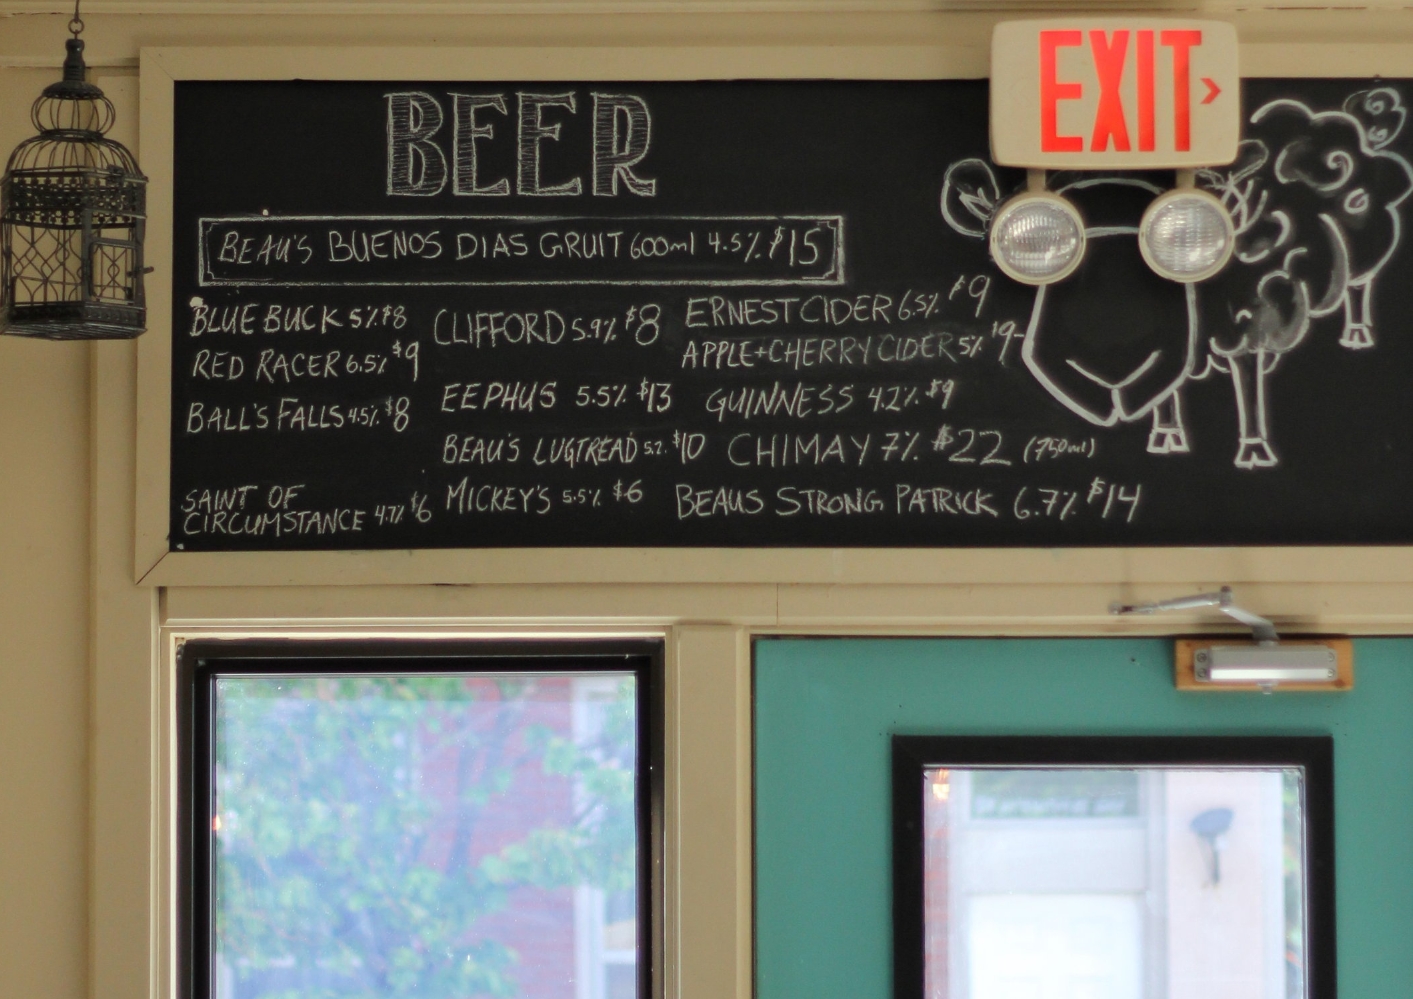 EXIT
BEER
BEAU'S BUENOS DIAS GRUIT 600ml 4.5% $15
BLUE BUCK 5% $8
RED RACER 6.5% $9
BALL'S FALLS 4.5% $8
SAINT OF
CIRCUMSTANCE 4.7% $6
CLIFFORD 5.9% $8
EEPHUS 5.5% $13
BEAU'S LUGTREAD 5.2. $10
MICKEY'S 5.5% $6
ERNEST CIDER 6.5% $9
APPLE+CHERRY CIDER 5% $9-
GUINNESS 4.2% $9
CHIMAY 7% $22 (750ml)
BEAUS STRONG PATRICK 6.7% $14